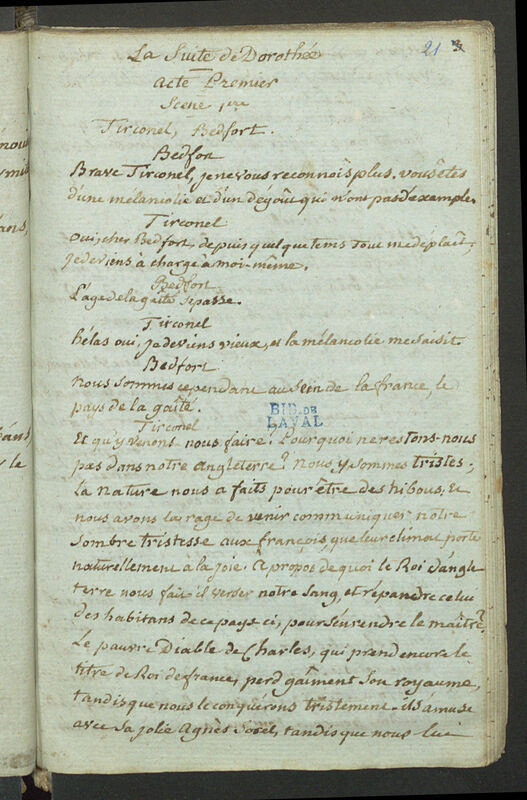 21 3
La Suite de Dorothée
acte Premier
Scene 1ere
Tirconel, Bedfort.
Bedfort
Brave Tirconel, je ne vous reconnois plus. vous êtes
d'une mélancolie et d'un dégoût qui n'ont pas d'exemple.
Tirconel
oui, cher Bedfort, depuis quelque tems tout me déplait,
je deviens à charge à moi-même.
Bedfort
L'age de la gaîté se passe.
Tirconel
hélas oui, je deviens vieux, et la mélancolie me saisit.
Bedfort
nous sommes cependant au sein de la france, le
pays de la gaîté.
BIB. DE
LAVAL
Tirconel
Et qu'y venons nous faire? Pourquoi ne restons-nous
pas dans notre angleterre? nous y sommes tristes;
la nature nous a faits pour être des hibous, et
nous avons la rage de venir communiquer notre
sombre tristesse aux françois, que leur climat porte
naturellement à la joie. à propos de quoi le Roi d'angle
terre nous fait il verser notre sang, et répandre celui
des habitans de ce pays ci, pour s'en rendre le maître?
Le pauvre Diable de Charles, qui prend encore le
titre de Roi de france, perd gaîment son royaume,
tandis que nous le conquérons tristement. il s'amuse
avec sa jolie Agnès Sorel, tandis que nous lui
nou
ans,
éans,
r le